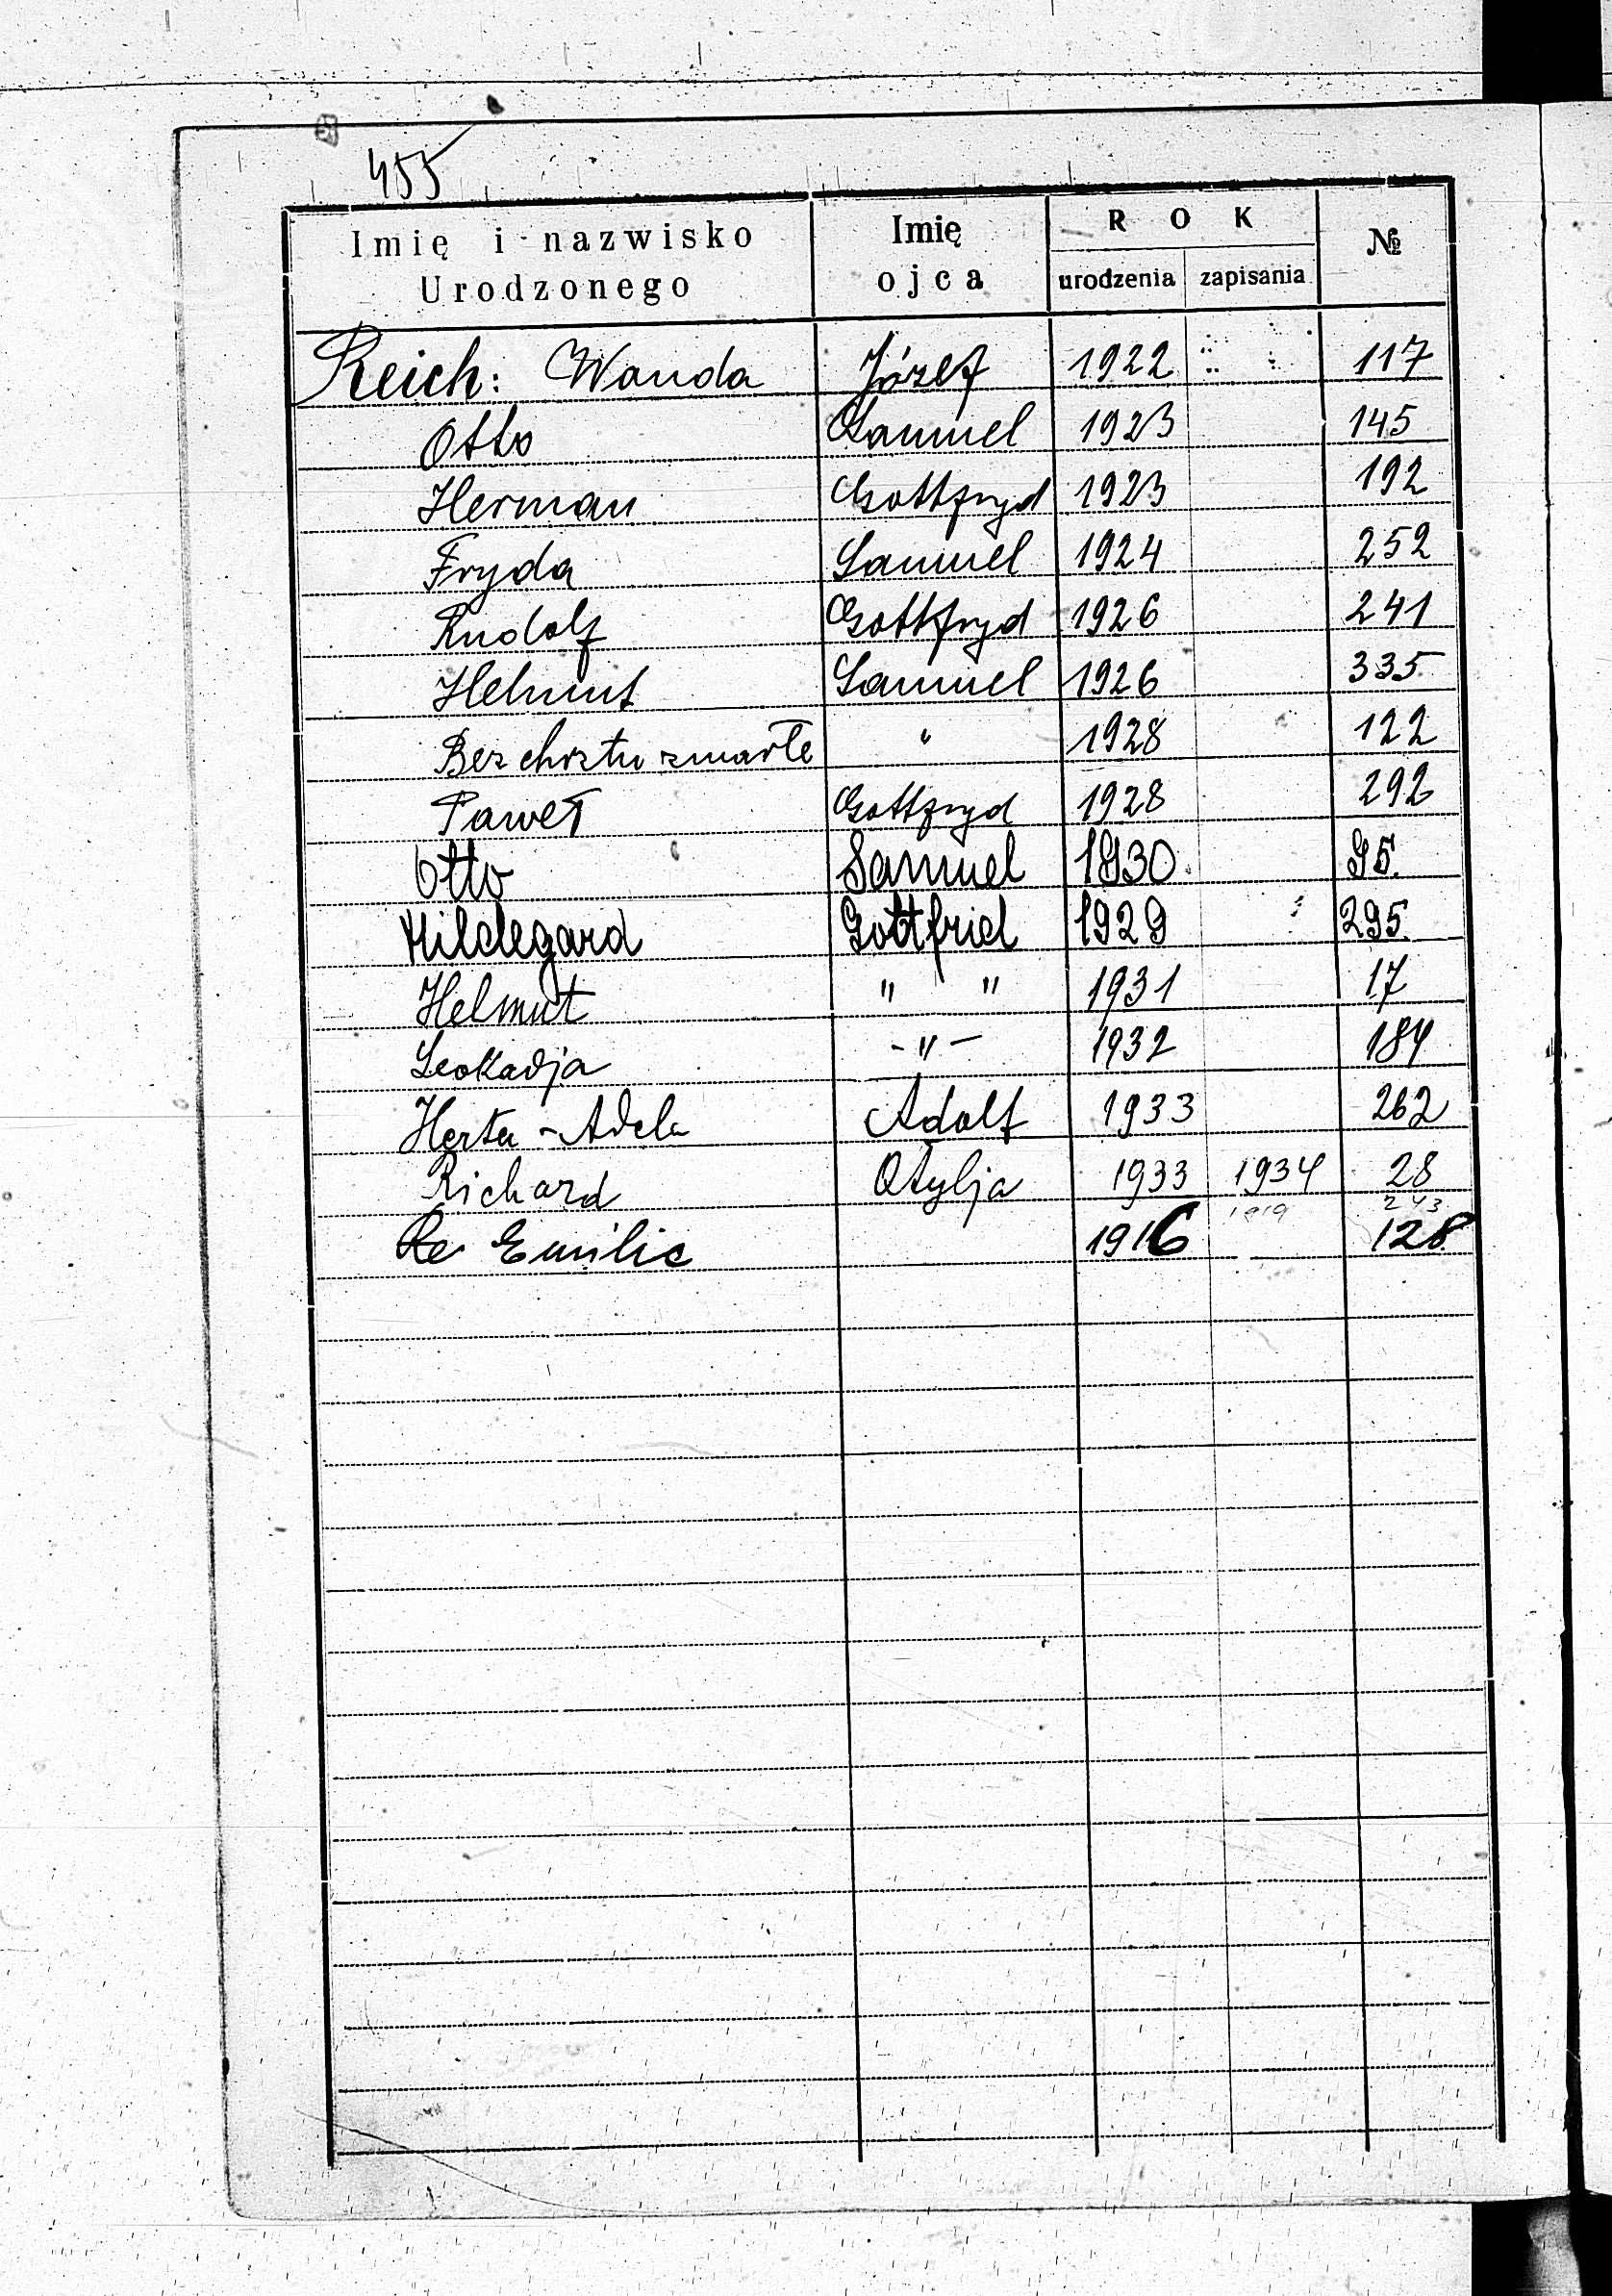 455
Imię i nazwisko Urodzonego | Imię ojca | ROK urodzenia | ROK zapisania | №
Reich: Wanda | Józef | 1922 | | 117
Otto | Samuel | 1923 | | 145
Herman | Gottfryd | 1923 | | 192
Fryda | Samuel | 1924 | | 252
Rudolf | Gottfryd | 1926 | | 241
Helmut | Samuel | 1926 | | 335
Bez chrztu zmarłe | " | 1928 | | 122
Paweł | Gottfryd | 1928 | | 292
Otto | Samuel | 1930 | | 95.
Hildegard | Gottfried | 1929 | | 295.
Helmut | " " | 1931 | | 17
Leokadja | -"- | 1932 | | 184
Herta - Adela | Adolf | 1933 | | 262
Richard | Otylja | 1933 | 1934 | 28
1919 | 243
Emilie | | 1916 | | 128